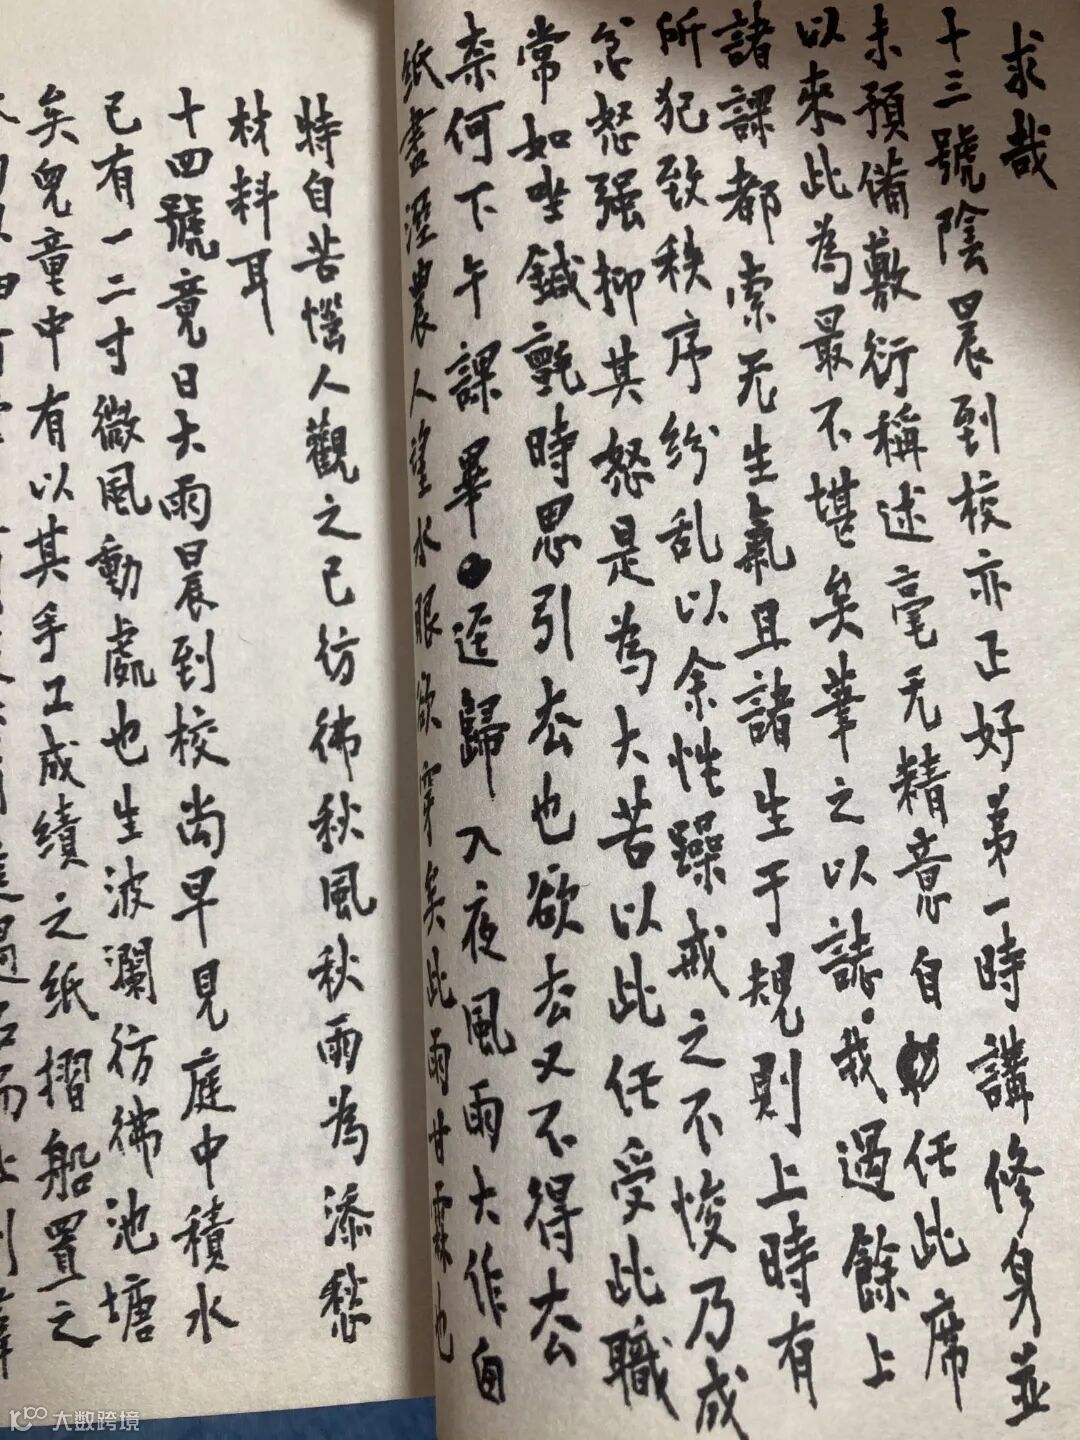 求哉
十三號陰晨到校亦正好第一時講修身並
未預備敷衍稱述毫无精意自任此席
以來此為最不堪矣筆之以誌我過餘上
諸課都索无生氣且諸生于規則上時有
所犯致秩序紛乱以余性躁戒之不悛乃成
忿怒强抑其怒是為大苦以此任受此職
常如坐鍼氈時思引去也欲去又不得去
柰何下午課畢迳歸入夜風雨大作自
紙書溼農人望水眼欲穿矣此雨甘霖也
特自苦惱人觀之已彷彿秋風秋雨為添愁
材料耳
十四號竟日大雨晨到校尚早見庭中積水
已有一二寸微風動處也生波瀾彷彿池塘
矣兒童中有以其手工成績之紙摺船置之
大数跨境